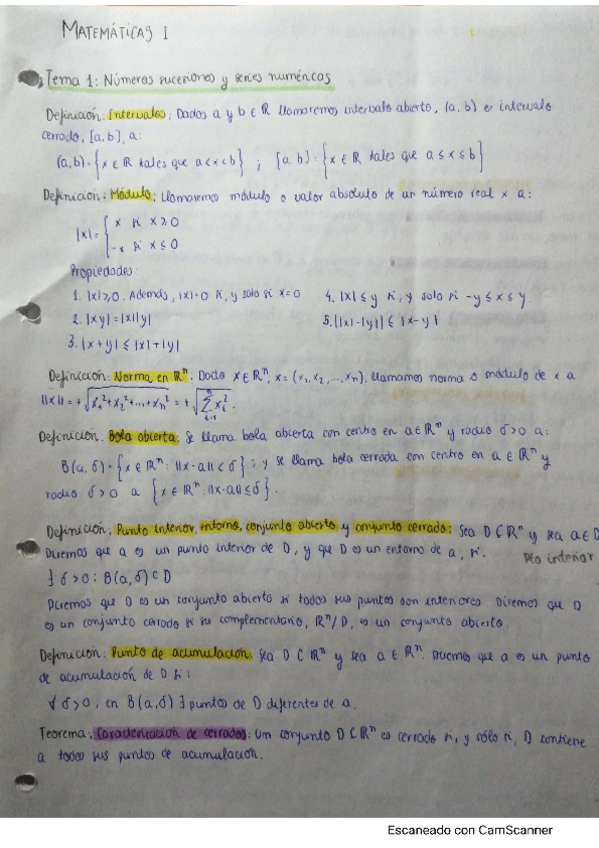 MATEMÁTICAS I
Tema 1: Números sucesiones y series numéricas
Definición: Intervalos: Dados a y b ∈ ℝ llamaremos intervalo abierto, (a, b) e intervalo
cerrado, [a, b], a:
(a, b) = {x ∈ ℝ tales que a < x < b} ; [a, b] = {x ∈ ℝ tales que a ≤ x ≤ b}
Definición: Módulo: Llamaremos módulo o valor absoluto de un número real x a:
|x| = { x si x ≥ 0
-x si x ≤ 0
Propiedades:
1. |x| ≥ 0. Además, |x| = 0 si, y solo si x = 0
4. |x| ≤ y si, y solo si -y ≤ x ≤ y.
2. |xy| = |x||y|
5. ||x|-|y|| ≤ |x-y|
3. |x+y| ≤ |x|+|y|
Definición: Norma en ℝⁿ: Dado x ∈ ℝⁿ, x = (x₁, x₂, ..., xₙ), llamamos norma o módulo de x a
||x|| = +√(x₁²+x₂²+...+xₙ²) = +√(∑ᵢ₌₁ⁿ xᵢ²).
Definición: Bola abierta: Se llama bola abierta con centro en a ∈ ℝⁿ y radio δ > 0 a:
B(a, δ) = {x ∈ ℝⁿ: ||x-a|| < δ}; y se llama bola cerrada con centro en a ∈ ℝⁿ y
radio δ > 0 a {x ∈ ℝⁿ: ||x-a|| ≤ δ}.
Definición: Punto interior, entorno, conjunto abierto y conjunto cerrado: Sea D ⊂ ℝⁿ y sea a ∈ D
Diremos que a es un punto interior de D, y que D es un entorno de a, si:
Pto interior
∃ δ > 0 : B(a, δ) ⊂ D
Diremos que D es un conjunto abierto si todos sus puntos son interiores. Diremos que D
es un conjunto cerrado si su complementario, ℝⁿ/D, es un conjunto abierto.
Definición: Punto de acumulación: Sea D ⊂ ℝⁿ y sea a ∈ ℝⁿ. Diremos que a es un punto
de acumulación de D si:
∀ δ > 0, en B(a, δ) ∃ puntos de D diferentes de a.
Teorema: Caracterización de cerrados: Um conjunto D ⊂ ℝⁿ es cerrado si, y sólo si, D contiene
a todos sus puntos de acumulación.
Escaneado con CamScanner